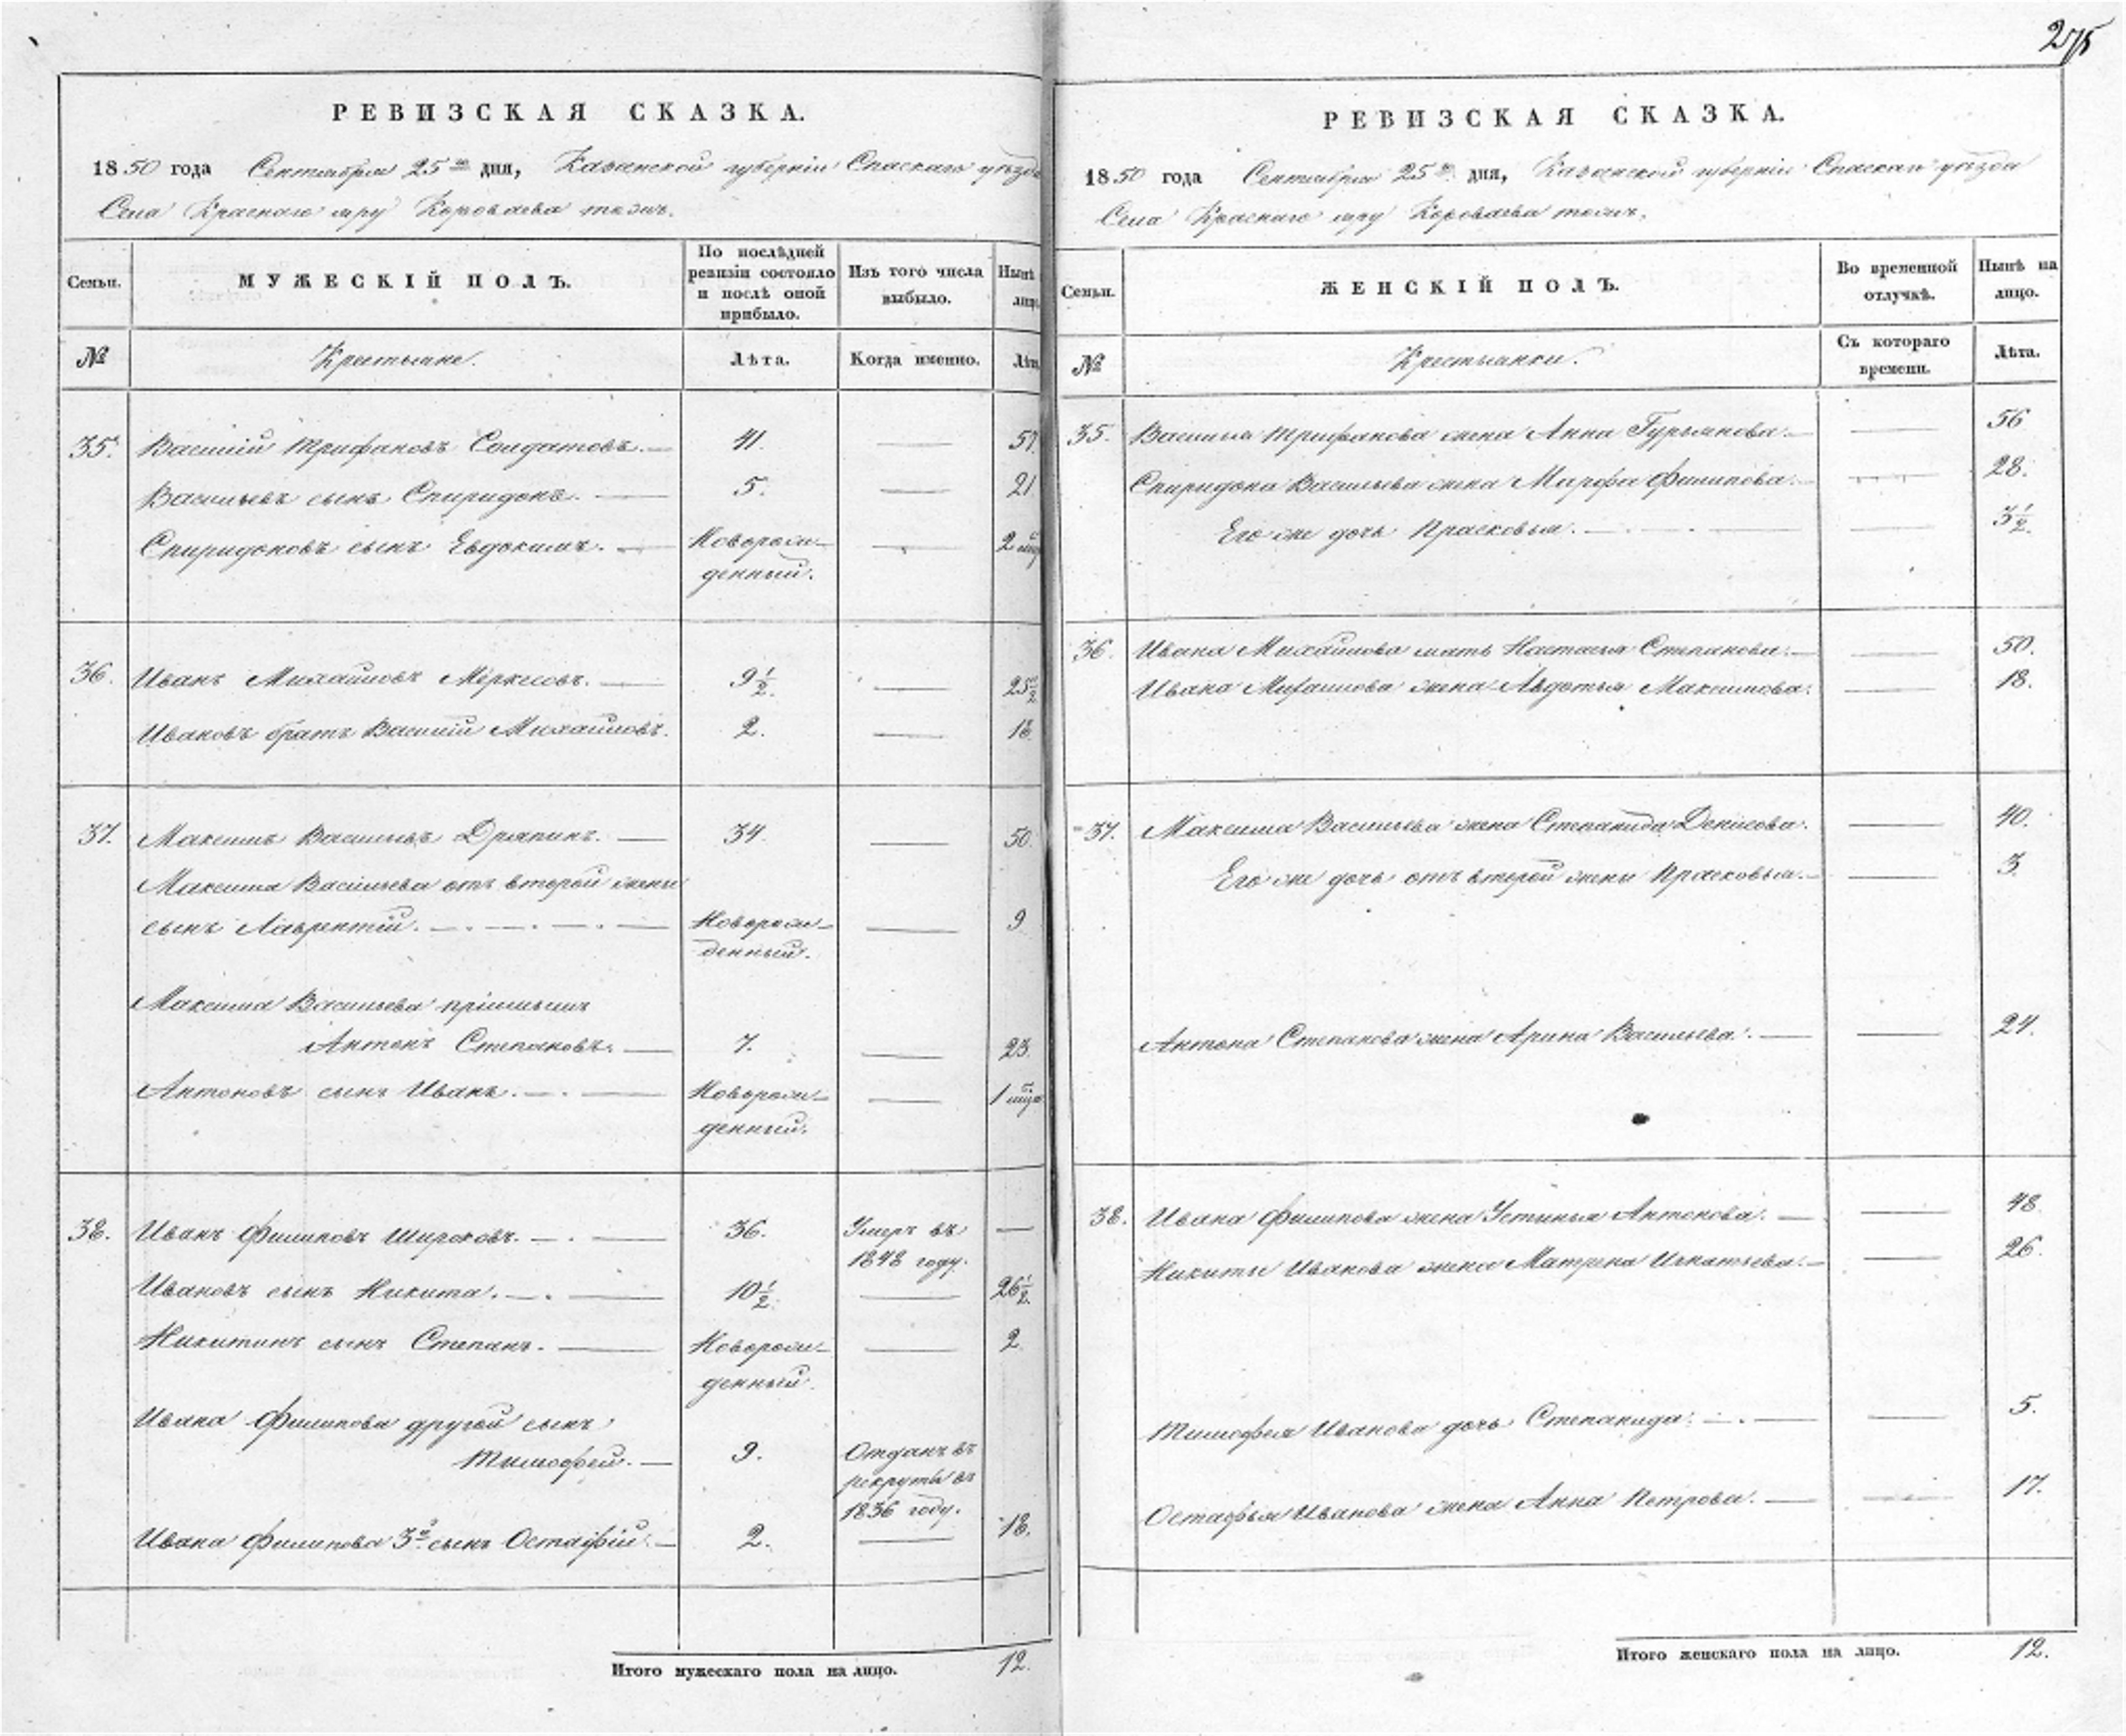 275
РЕВИЗСКАЯ СКАЗКА.
1850 года Сентября 25го дня, Казанской губерніи Спаскаго уѣзда
Села Краснаго яру Короваева тожъ.
Семьи.
МУЖЕСКІЙ ПОЛЪ.
По послѣдней
ревизіи состояло
и послѣ оной
прибыло.
Изъ того числа
выбыло.
Нынѣ
лицо
№
Крестьяне.
Лѣта.
Когда именно.
Лѣта
35. Василій Трифановъ Солдатовъ. — 41. — 57
Васильевъ сынъ Спиридонъ. — 5. — 21
Спиридоновъ сынъ Евдокимъ. —Новорож- — 2
денный.
36. Иванъ Михайловъ Меркесовъ. — 9 1/2. — 25 1/2
Ивановъ братъ Василій Михайловъ. 2. — 18
37. Максимъ Васильевъ Дряпинъ. — 34. — 50
Максима Васильева отъ второй жены
сынъ Лаврентій. — Новорож- — 9
денный.
Максима Васильева пріимышъ
Антонъ Степановъ. — 7. — 23
Антоновъ сынъ Иванъ. — Новорож- — 1
денный.
38. Иванъ Филиповъ Широковъ. — 36. Умеръ въ —
1848 году.
Ивановъ сынъ Никита. — 10 1/2. — 26 1/2.
Никитинъ сынъ Степанъ. — Новорож- — 2
денный.
Ивана Филипова другой сынъ
Тимофей. — 9. Отданъ въ
рекруты въ
1836 году.
Ивана Филипова 3й сынъ Остафій. — 2. — 18.
Итого мужескаго пола на лицо. 12.
РЕВИЗСКАЯ СКАЗКА.
1850 года Сентября 25го дня, Казанской губерніи Спаскаго уѣзда
Села Краснаго яру Короваева тожъ.
Семьи.
ЖЕНСКІЙ ПОЛЪ.
Во временной
отлучкѣ.
Нынѣ на
лицо.
№
Крестьянки.
Съ котораго
времени.
Лѣта.
35. Василья Трифанова жена Анна Гурьянова. — 56
Спиридона Васильева жена Марфа Филипова. — 28.
Его же дочь Прасковья. — 3 1/2.
36. Ивана Михайлова мать Настасья Степанова. — 50.
Ивана Михайлова жена Авдотья Максимова. — 18.
37. Максима Васильева жена Степанида Денисова. — 40.
Его же дочь отъ второй жены Прасковья. — 3.
Антона Степанова жена Арина Васильева. — 24.
38. Ивана Филипова жена Устинья Антонова. — 48.
Никиты Иванова жена Матрена Игнатьева. — 26.
Тимофея Иванова дочь Степанида. — 5.
Остафья Иванова жена Анна Петрова. — 17.
Итого женскаго пола на лицо. 12.